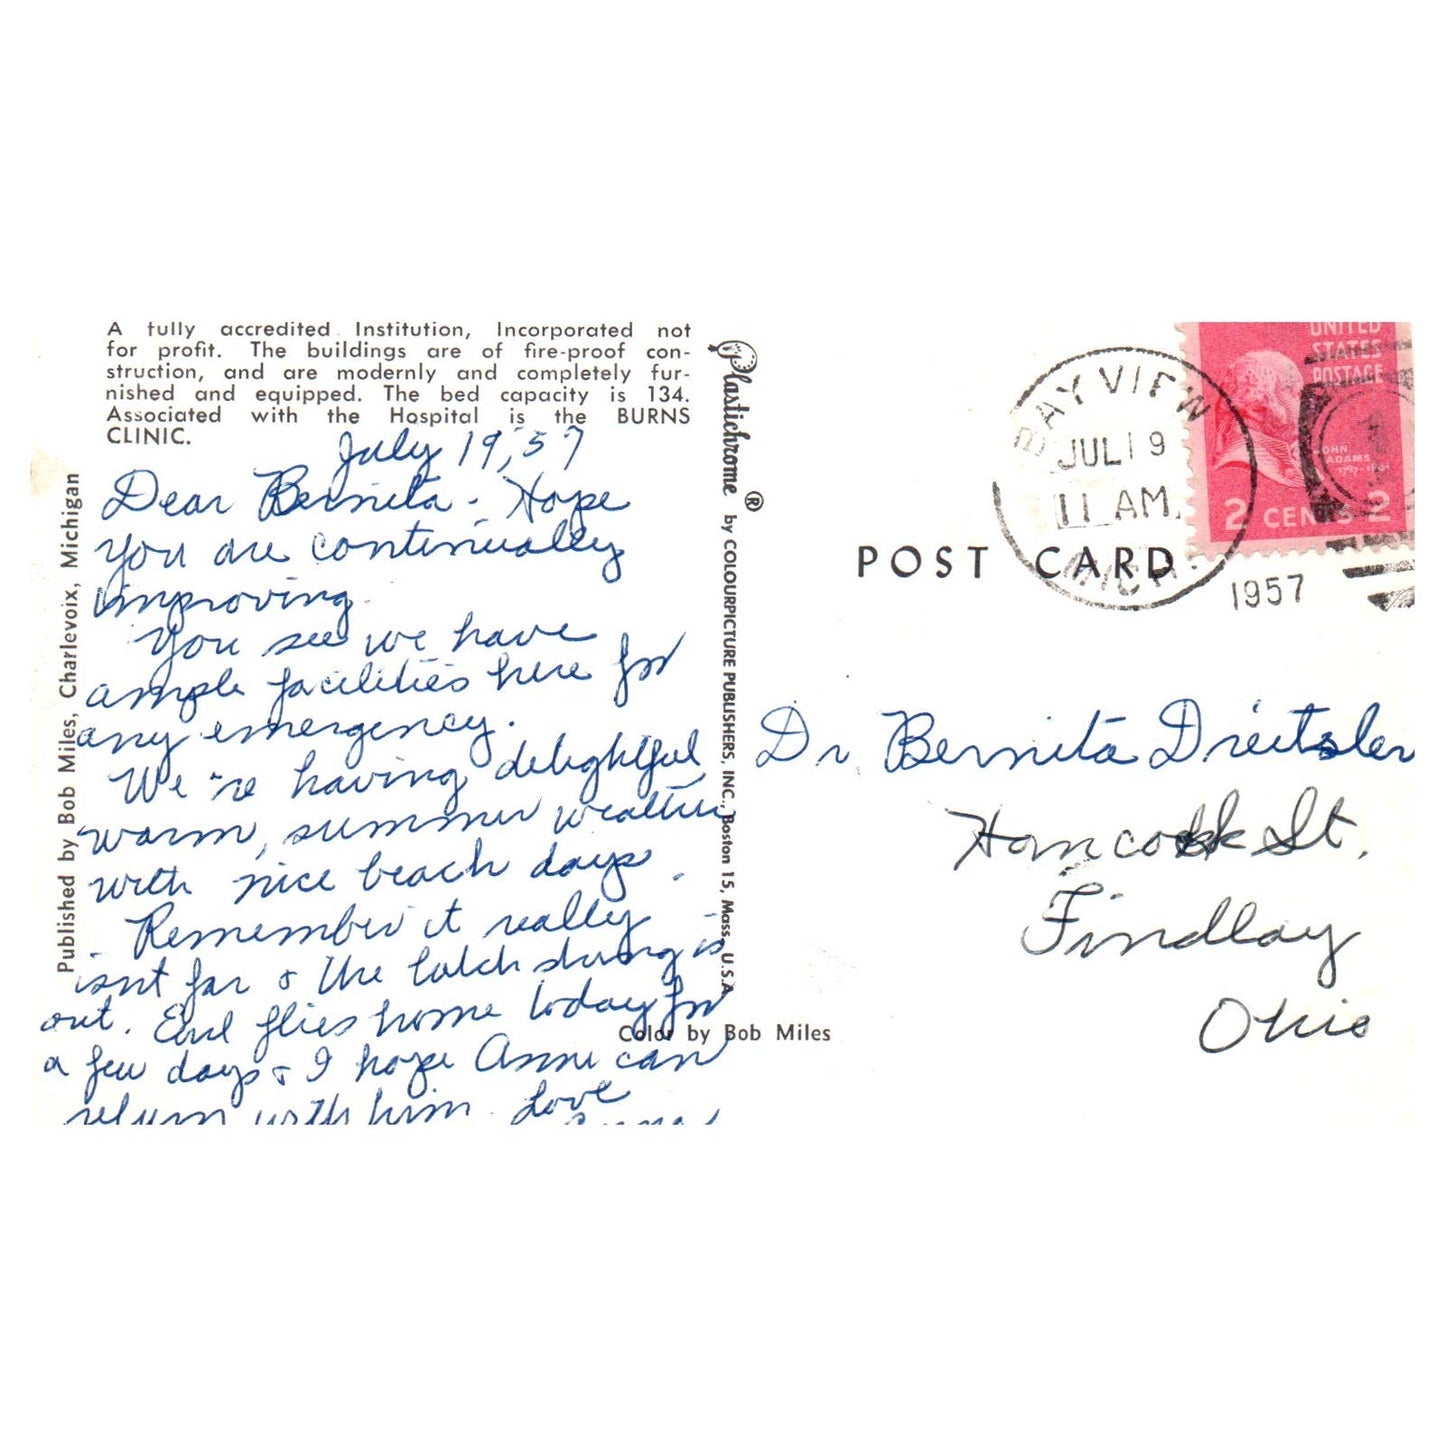 A fully accredited Institution, Incorporated not
for profit. The buildings are of fire-proof con-
struction, and are modernly and completely fur-
nished and equipped. The bed capacity is 134.
Associated with the Hospital is the BURNS
CLINIC.
July 19, 57
Dear Bernita - Hope
you are continually
improving.
You see we have
ample facilities here for
any emergency.
We're having delightful
warm, summer weather
with nice beach days.
Remember it really
isn't far & the latch string is
out. Earl flies home today for
a few days & I hope Anne can
return with him. Love
Published by Bob Miles, Charlevoix, Michigan
Plastichrome ® by COLOURPICTURE PUBLISHERS, INC., Boston 15, Mass., U.S.A.
Color by Bob Miles
POST CARD
BAY VIEW
JUL 19
11 AM
MICH.
1957
UNITED
STATES
POSTAGE
JOHN
ADAMS
1797-1801
2 CENTS 2
Dr. Bernita Dreitsler
Hancock St.
Findlay
Ohio